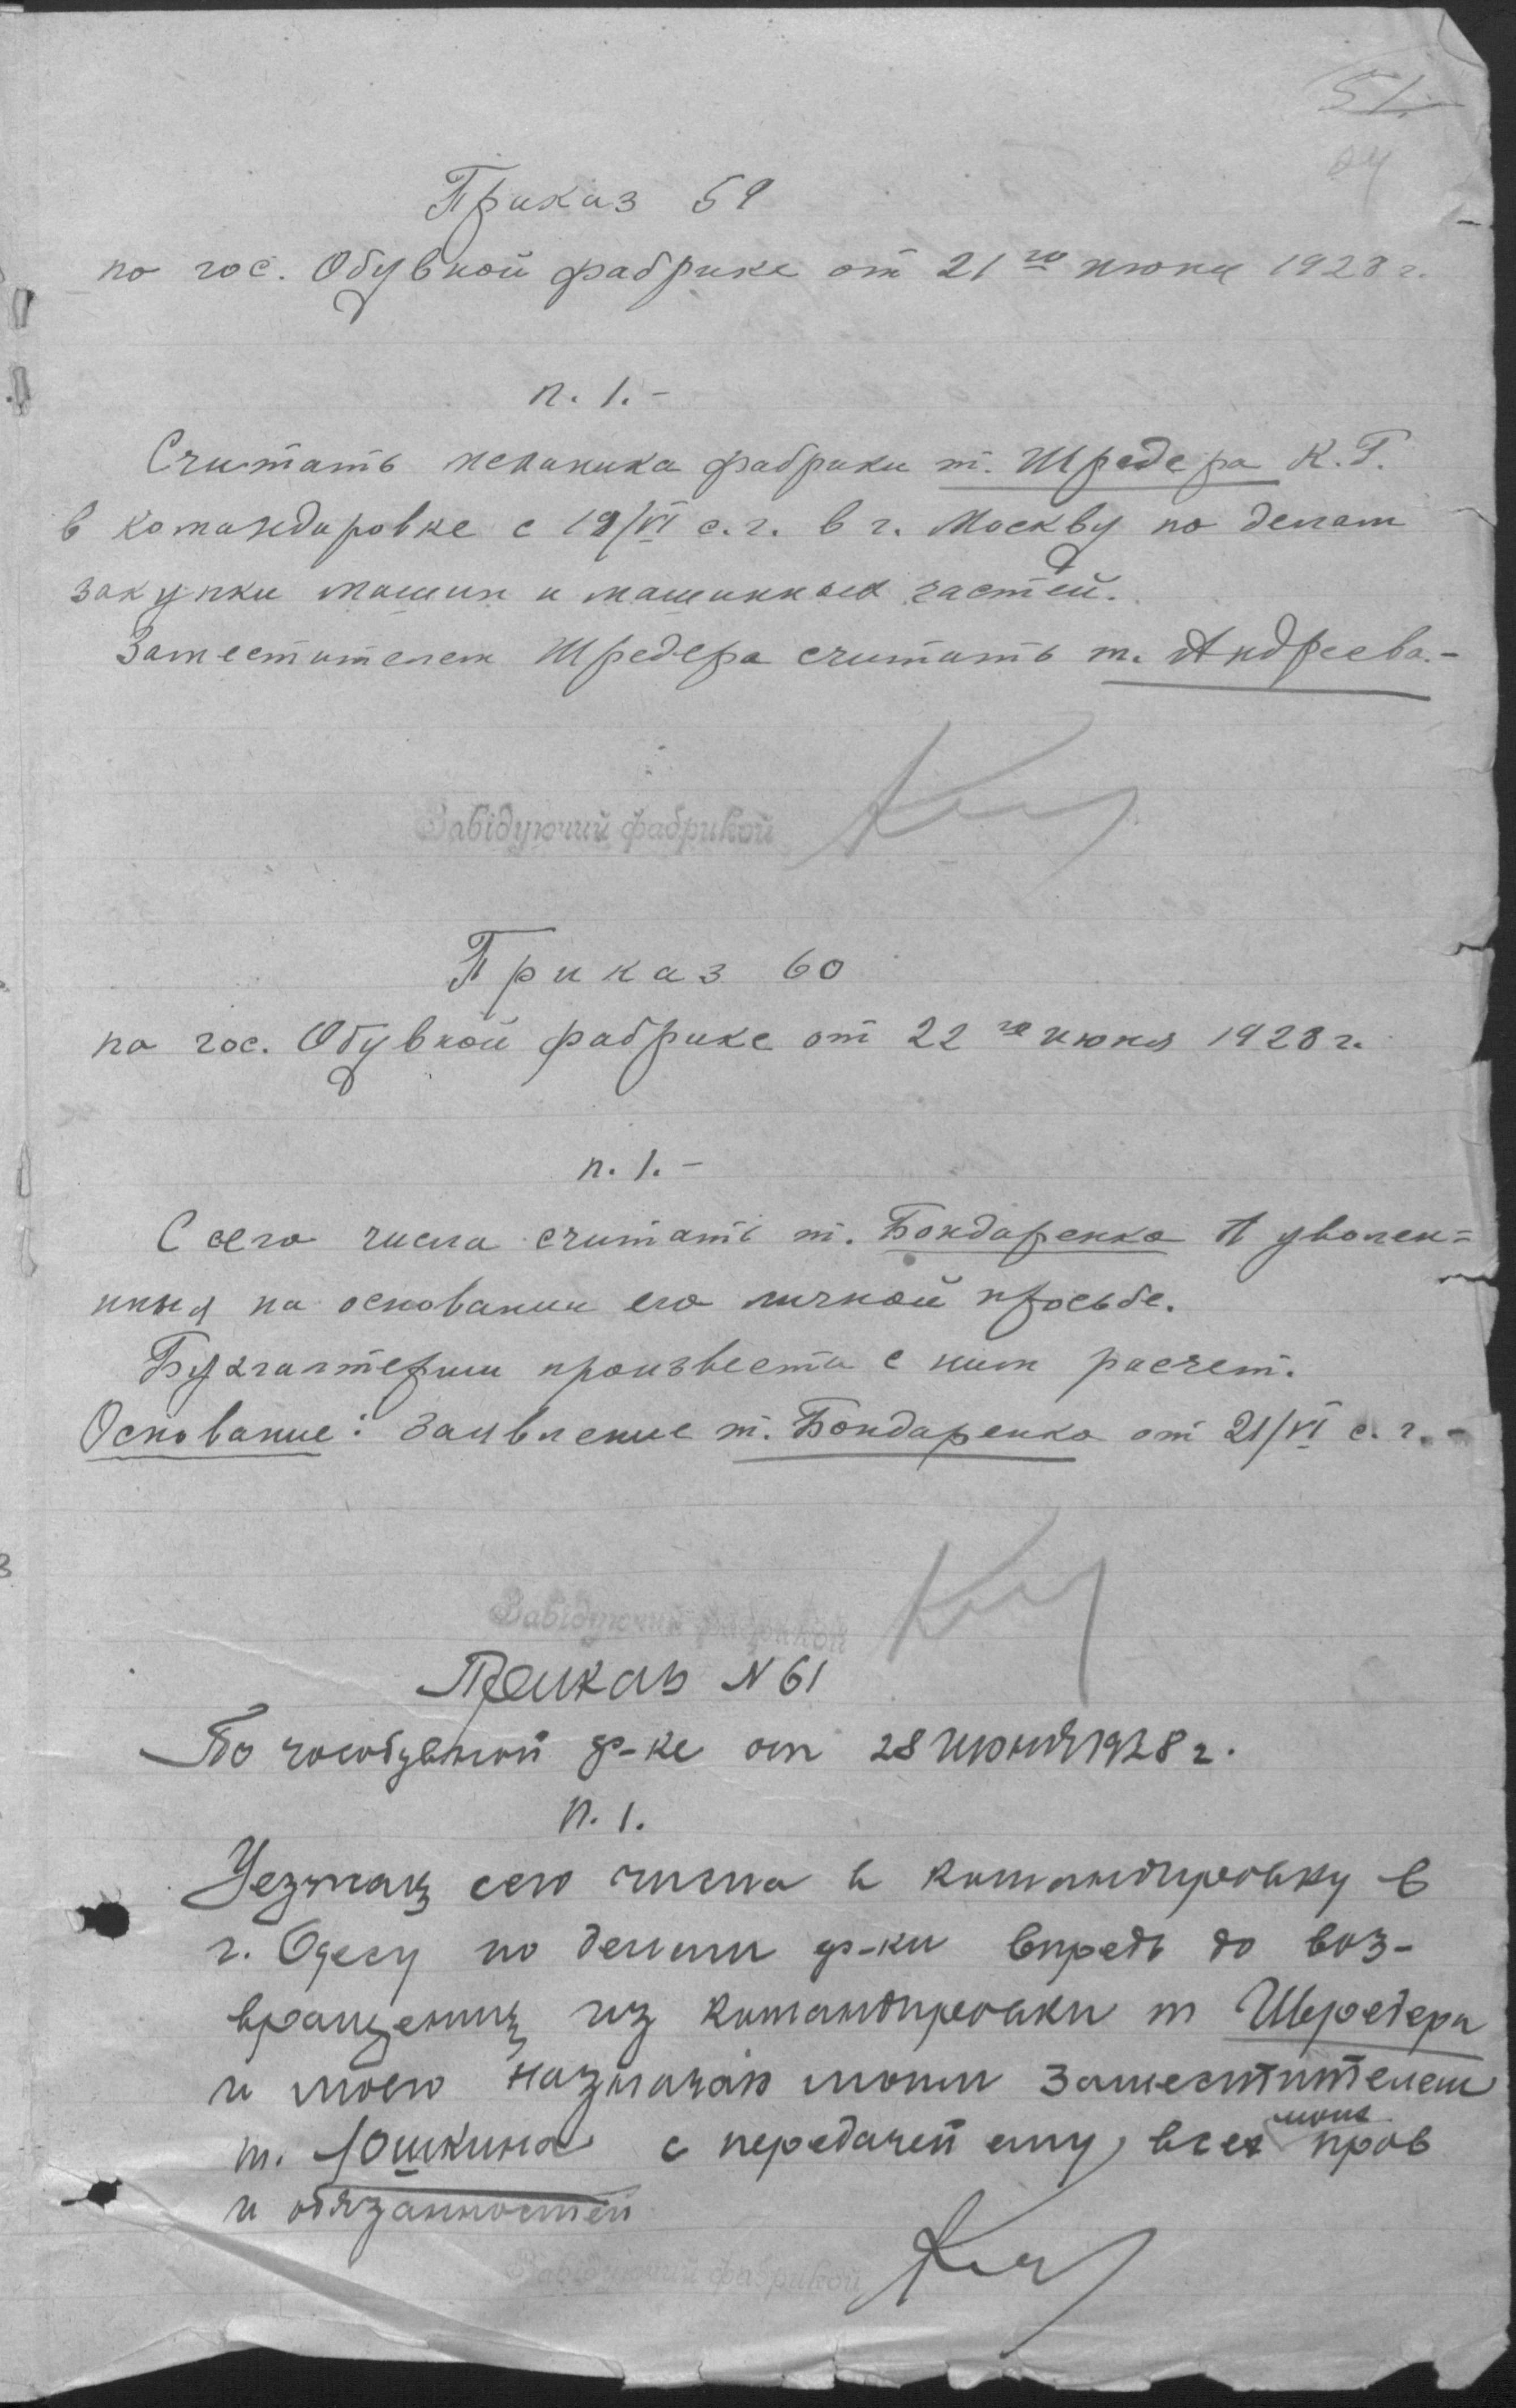 51.
Приказ 59
по гос. Обувной фабрике от 21го июня 1928 г.
п. 1.-
Считать механика фабрики т. Шредера К. Г.
в командировке с 19/VI с. г. в г. Москву по делам
закупки машин и машинных частей.
Заместителем Шредера считать т. Андреева.-
Завідуючий фабрикой
Приказ 60
по гос. Обувной фабрике от 22го июня 1928 г.
п. 1.-
С сего числа считать т. Бондаренко А уволен=
ным на основании его личной просьбе.
Бухгалтерии произвести с ним расчет.
Основание: Заявление т. Бондаренко от 21/VI с. г. -
Завідуючий фабрикой
Приказ N 61
По гособувной ф-ке от 28 июня 1928 г.
п. 1.
Уезжая сего числа в командировку в
г. Одесу по делам ф-ки впредь до воз-
вращения из командировки т Шредера
и моего назначаю моим заместителем
т. Юшкина с передачей ему всех моих прав
и обязанностей
Завідуючий фабрикой